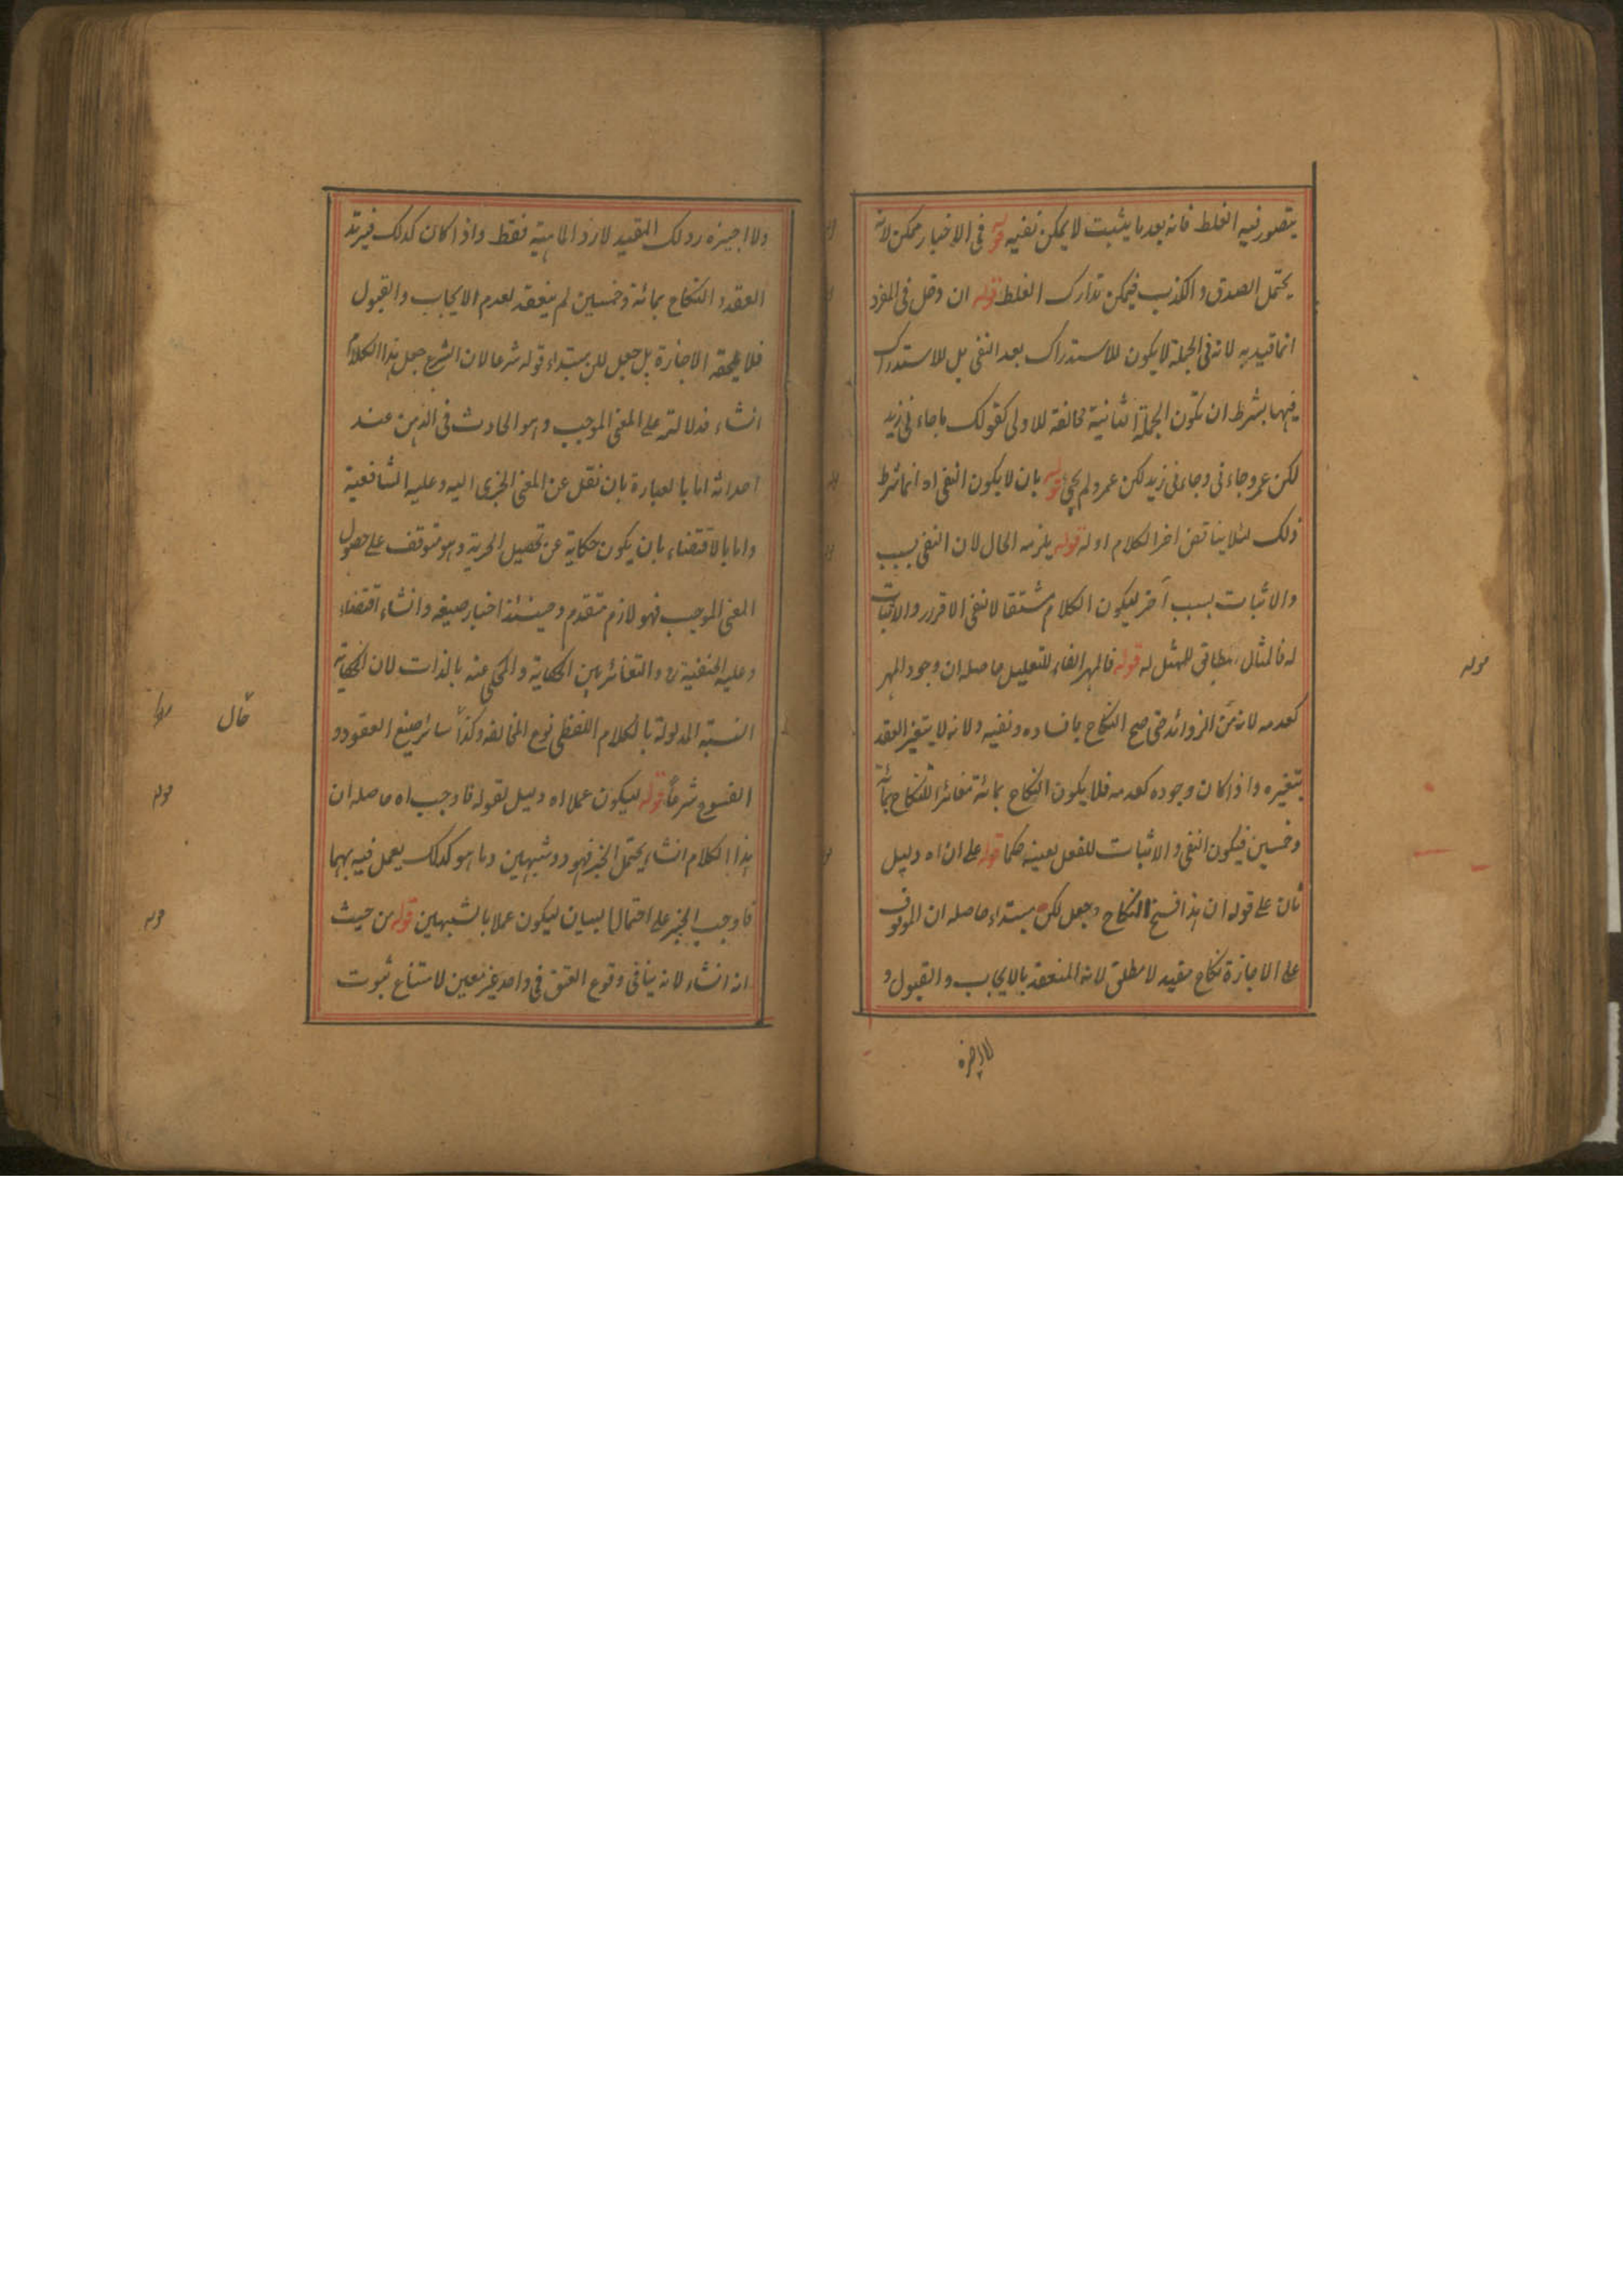 يتصور فيه الغلط فانه بعد ما يثبت لا يمكن نفيه قوله فى الاخبار ممكن لانه
يحتمل الصدق و الكذب فيمكن تدارك الغلط قوله ان دخل فى المفرد
انما قيد به لانه فى الجملة لا يكون للاستدراك بعد النفى بل للاستدراك
فيها بشرط ان تكون الجملة الثانية مخالفة للاولى كقولك ما جاءنى زيد
لكن عمرو جاءنى وجاءنى زيد لكن عمرو لم يجئ قوله بان لا يكون النفى اه انما شرط
ذلك لئلا يناقض اخر الكلام اوله قوله يلزمه الحال لان النفى بسبب
والاثبات بسبب آخر ليكون الكلام متسقا لا نفى الاقرار والاثبات
له فالمثال مطابق للمثل له قوله فالمهر الفاء للتعليل حاصله ان وجود المهر
كعدمه لانه من الزوائد حتى صح النكاح بافساده ونفيه ولانه لا يتغير العقد
بتغيره واذا كان وجوده كعدمه فلا يكون النكاح بمائة مغائرا للنكاح بمائة
وخمسين فيكون النفى والاثبات للفعل بعينه حكما قوله على ان اه دليل
ثان على قوله ان هذا فسخ النكاح وجعل لكن مبتداء حاصله ان الموقوف
على الاجازة نكاح مقيد لا مطلق لانه المنعقد بالايجاب والقبول و
قوله
ولا اجيزه رد لك المقيد لا رد الماهية فقط واذا كان كذلك فيرتد
العقد و النكاح بمائة وخمسين لم ينعقد لعدم الايجاب والقبول
فلا يلحقه الاجازة بل جعل لكن مبتداء قوله شرعا لان الشرع جعل هذا الكلام
انشاء فدلالته على المعنى الموجب وهو الحادث فى الذهن عند
احداثه اما بالعبارة بان نقل عن المعنى الخبرى اليه وعليه الشافعية
واما بالاقتضاء بان يكون حكاية عن تحصيل الحرية وهو متوقف على حصول
المعنى الموجب فهو لازم متقدم وحينئذ اخبار صيغة وانشاء اقتضاء
وعليه الحنفية و التغائر بين الحكاية والمحكى عنه بالذات لان الحكاية
النسبة المدلولة بالكلام اللفظى نوع المخالفة وكذا سائر صيغ العقود و
الفسوخ شرعا قوله ليكون عملا اه دليل لقوله فاوجب اه حاصله ان
هذا الكلام انشاء يحتمل الخبر فهو ذو شبهين وما هو كذلك يعمل فيه بهما
فاوجب الخبر على احتمال البيان ليكون عملا بالشبهين قوله من حيث
انه انشاء لانه ينافى وقوع العتق فى واحد غير معين لامتناع ثبوت
قال
قوله
قوله